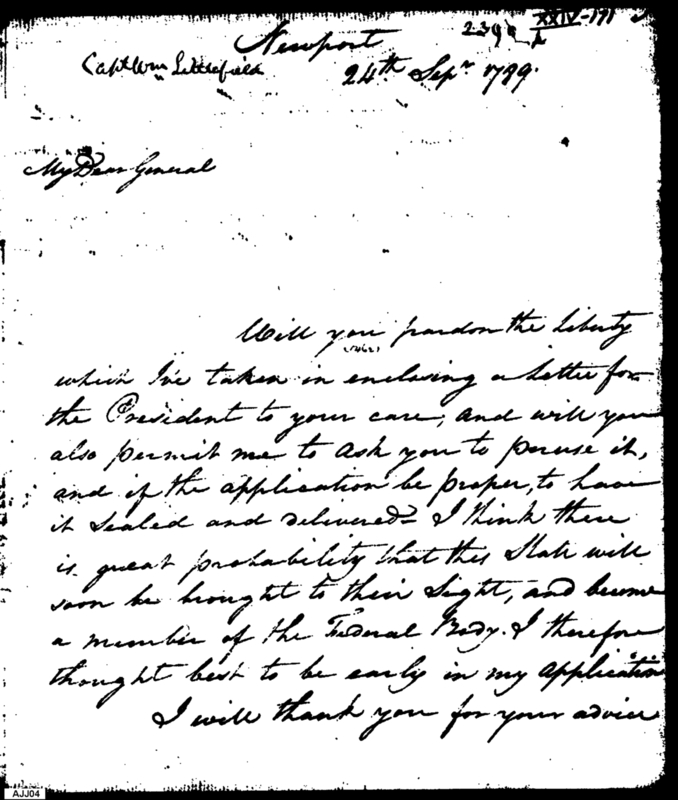 XXIV-171
Newport
Capt Wm Littlefield
24th Sepr 1789.
My Dear General
Will you pardon the Liberty
which I've taken in enclosing a Letter for
the President to your care, and will you
also permit me to ask you to peruse it,
and if the application be proper, to have
it sealed and delivered? I think there
is great probability that this State will
soon be brought to their Sight, and become
a member of the Federal Body. I therefore
thought best to be early in my application
I will thank you for your advice
AJJ04